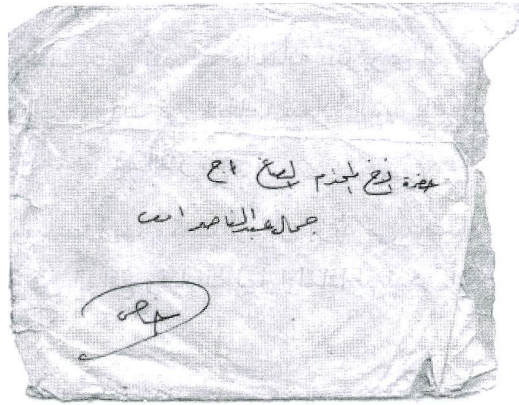 حضرة الأخ المحترم الصاغ أ ح
جمال عبد الناصر
خاص